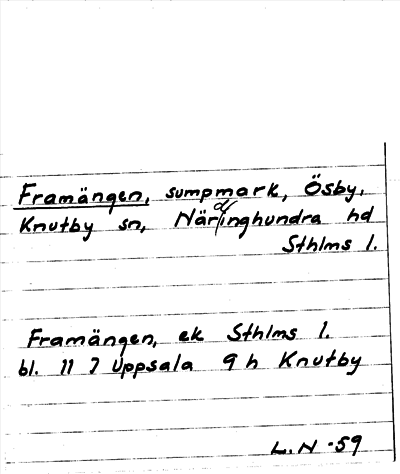 Framängen, sumpmark, Ösby,
Knutby sn, Närdinghundra hd
Sthlms l.
Framängen, ek Sthlms l.
bl. 11 7 Uppsala 9 h Knutby
L.N -59